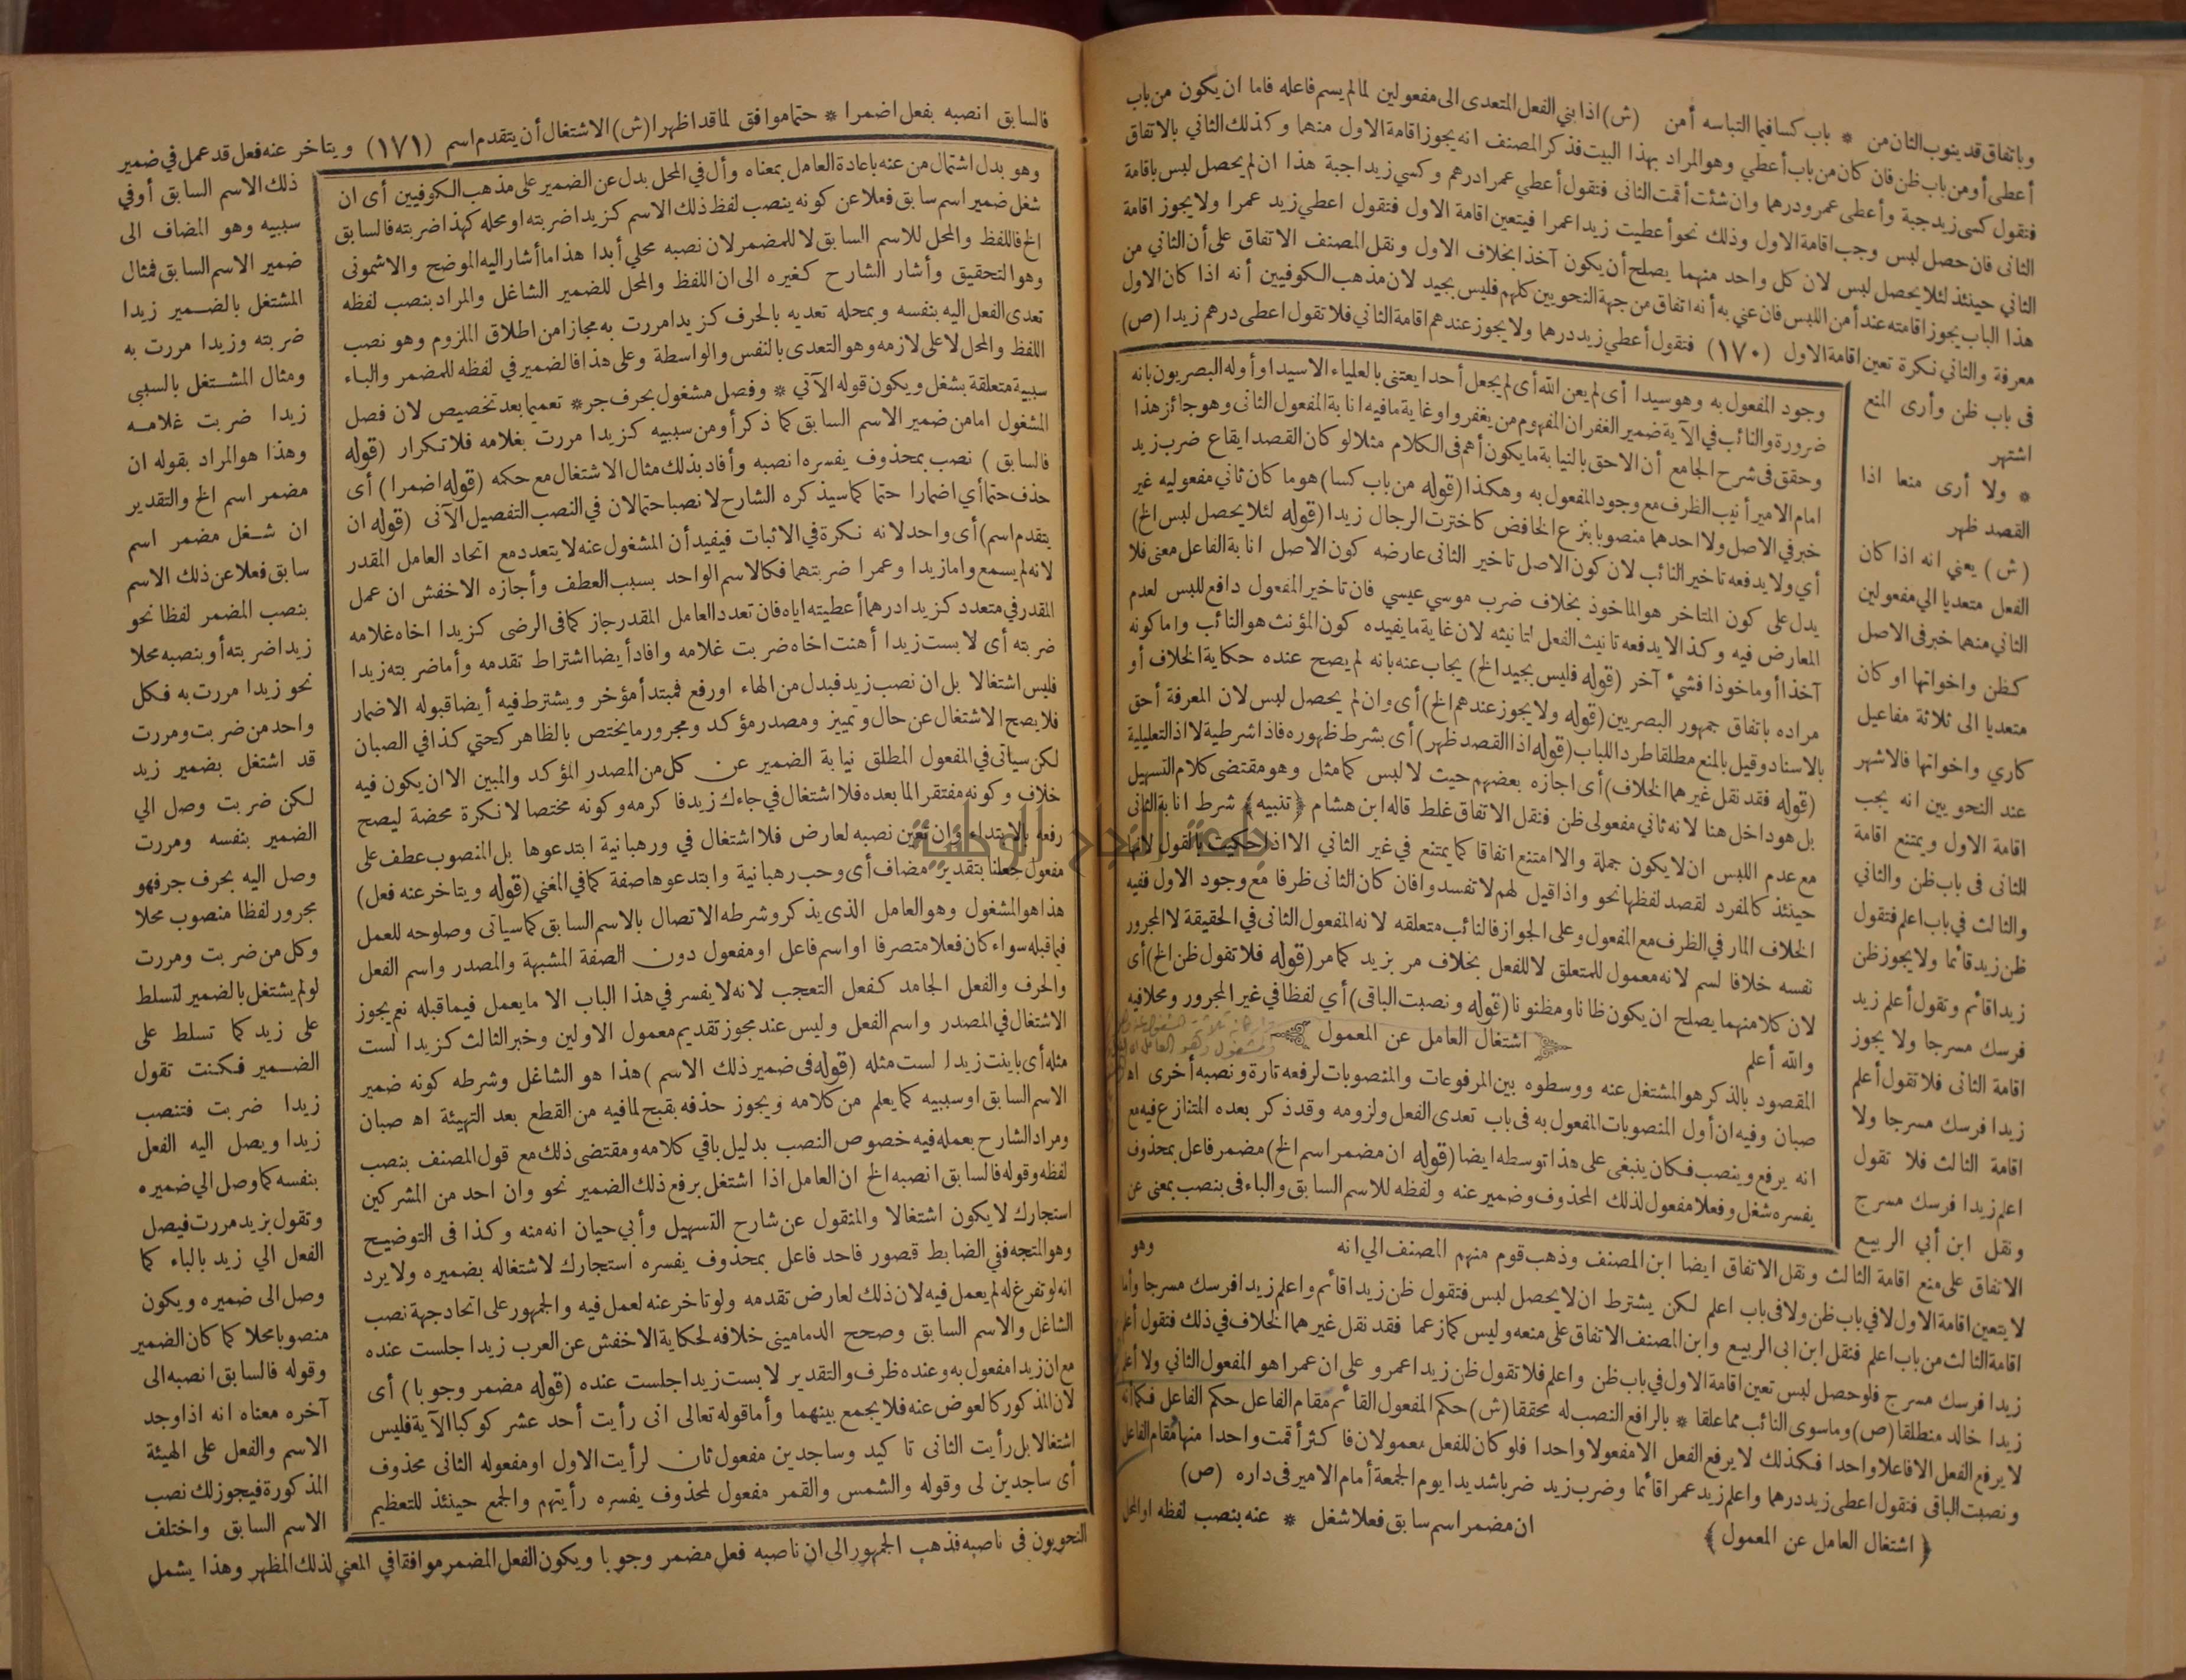 وباتفاق قد ينوب الثان من * باب كسا فيما التباسه أمن (ش) اذا بني الفعل المتعدى الى مفعولين لما لم يسم فاعله فاما ان يكون من باب
أعطى أو من باب ظن فان كان من باب أعطي وهو المراد بهذا البيت فذكر المصنف انه يجوز اقامة الاول منهما وكذلك الثاني بالاتفاق
فتقول كسى زيد جبة وأعطى عمرو درهما وان شئت أقمت الثانى فتقول أعطي عمرا درهم وكسي زيدا جبة هذا ان لم يحصل لبس باقامة
الثانى فان حصل لبس وجب اقامة الاول وذلك نحو أعطيت زيدا عمرا فيتعين اقامة الاول فتقول اعطي زيد عمرا ولا يجوز اقامة
الثاني حينئذ لئلا يحصل لبس لان كل واحد منهما يصلح أن يكون آخذا بخلاف الاول ونقل المصنف الاتفاق على أن الثاني من
هذا الباب يجوز اقامته عند أمن اللبس فان عني به أنه اتفاق من جهة النحويين كلهم فليس بجيد لان مذهب الكوفيين أنه اذا كان الاول
معرفة والثاني نكرة تعين اقامة الاول (١٧٠) فتقول أعطي زيد درهما ولا يجوز عندهم اقامة الثاني فلا تقول اعطى درهم زيدا (ص)
فى باب ظن وأرى المنع
اشتهر
* ولا أرى منعا اذا
القصد ظهر
(ش) يعني انه اذا كان
الفعل متعديا الي مفعولين
الثاني منهما خبر فى الاصل
كظن واخواتها او كان
متعديا الى ثلاثة مفاعيل
كاري واخواتها فالاشهر
عند النحويين انه يجب
اقامة الاول ويمتنع اقامة
الثانى فى باب ظن والثاني
والثالث في باب اعلم فتقول
ظن زيد قائما ولا يجوز ظن
زيدا قائم وتقول أعلم زيد
فرسك مسرجا ولا يجوز
اقامة الثانى فلا تقول أعلم
زيدا فرسك مسرجا ولا
اقامة الثالث فلا تقول
اعلم زيدا فرسك مسرج
ونقل ابن أبي الربيع
وجود المفعول به وهو سيدا أى لم يعن الله أى لم يجعل أحدا يعتنى بالعلياء الا سيدا وأوله البصريون بانه
ضرورة والنائب في الآية ضمير الغفران المفهوم من يغفروا وغاية ما فيه انابة المفعول الثانى وهو جائز هذا
وحقق فى شرح الجامع أن الاحق بالنيابة ما يكون أهم فى الكلام مثلا لو كان القصد ايقاع ضرب زيد
امام الامير أنيب الظرف مع وجود المفعول به وهكذا (قوله من باب كسا) هو ما كان ثاني مفعوليه غير
خبر في الاصل ولا احدهما منصوبا بنزع الخافض كاخترت الرجال زيدا (قوله لئلا يحصل لبس الخ)
أي ولا يدفعه تاخير النائب لان كون الاصل تاخير الثانى عارضه كون الاصل انابة الفاعل معنى فلا
يدل على كون المتاخر هو الماخوذ بخلاف ضرب موسي عيسي فان تاخير المفعول دافع للبس لعدم
المعارض فيه وكذا لا يدفعه تانيث الفعل لتانيثه لان غاية ما يفيده كون المؤنث هو النائب واما كونه
آخذا أو ماخوذا فشيء آخر (قوله فليس بجيد الخ) يجاب عنه بانه لم يصح عنده حكاية الخلاف أو
مراده باتفاق جمهور البصريين (قوله ولا يجوز عندهم الخ) أى وان لم يحصل لبس لان المعرفة أحق
بالاسناد وقيل بالمنع مطلقا طردا للباب (قوله اذا القصد ظهر) أى بشرط ظهوره فاذا شرطية لا اذ التعليلية
(قوله فقد نقل غيرهما الخلاف) أى اجازه بعضهم حيث لا لبس كما مثل وهو مقتضى كلام التسهيل
بل هو داخل هنا لانه ثاني مفعولى ظن فنقل الاتفاق غلط قاله ابن هشام ﴿تنبيه﴾ شرط انابة الثانى
مع عدم اللبس ان لا يكون جملة والا امتنع اتفاقا كما يمتنع في غير الثاني الا اذا حكيت بالقول لانها
حينئذ كالمفرد لقصد لفظها نحو واذا قيل لهم لا تفسدوا فان كان الثانى ظرفا مع وجود الاول ففيه
الخلاف المار في الظرف مع المفعول وعلى الجواز فالنائب متعلقه لانه المفعول الثانى في الحقيقة لا المجرور
نفسه خلافا لسم لانه معمول للمتعلق لا للفعل بخلاف مر بزيد كما مر (قوله فلا تقول ظن الخ) أى
لان كلا منهما يصلح ان يكون ظانا ومظنونا (قوله ونصبت الباقى) أي لفظا في غير المجرور ومحلا فيه
والله أعلم
اشتغال العامل عن المعمول
المقصود بالذكر هو المشتغل عنه ووسطوه بين المرفوعات والمنصوبات لرفعه تارة ونصبه أخرى اه
صبان وفيه ان أول المنصوبات المفعول به فى باب تعدى الفعل ولزومه وقد ذكر بعده المتنازع فيه مع
انه يرفع وينصب فكان ينبغى على هذا توسطه ايضا (قوله ان مضمر اسم الخ) مضمر فاعل بمحذوف
يفسره شغل وفعلا مفعول لذلك المحذوف وضمير عنه ولفظه للاسم السابق والباء فى بنصب بمعنى عن
وهو
الاتفاق على منع اقامة الثالث ونقل الاتفاق ايضا ابن المصنف وذهب قوم منهم المصنف الي انه
لا يتعين اقامة الاول لا في باب ظن ولا فى باب اعلم لكن يشترط ان لا يحصل لبس فتقول ظن زيدا قائم واعلم زيدا فرسك مسرجا وأما
اقامة الثالث من باب اعلم فنقل ابن ابى الربيع وابن المصنف الاتفاق على منعه وليس كما زعما فقد نقل غيرهما الخلاف في ذلك فتقول أعلم
زيدا فرسك مسرج فلو حصل لبس تعين اقامة الاول في باب ظن واعلم فلا تقول ظن زيدا عمرو على ان عمرا هو المفعول الثاني ولا أعلم
زيدا خالد منطلقا (ص) وما سوى النائب مما علقا * بالرافع النصب له محققا (ش) حكم المفعول القائم مقام الفاعل حكم الفاعل فكما أنه
لا يرفع الفعل الا فاعلا واحدا فكذلك لا يرفع الفعل الا مفعولا واحدا فلو كان للفعل معمولان فاكثر أقمت واحدا منها مقام الفاعل
ونصبت الباقى فتقول اعطى زيد درهما واعلم زيد عمرا قائما وضرب زيد ضربا شديدا يوم الجمعة أمام الامير فى داره (ص)
﴿اشتغال العامل عن المعمول﴾ ان مضمر اسم سابق فعلا شغل * عنه بنصب لفظه او المحل
فالسابق انصبه بفعل اضمرا * حتما موافق لما قد اظهرا (ش) الاشتغال أن يتقدم اسم (١٧١) ويتاخر عنه فعل قد عمل في ضمير
وهو بدل اشتمال من عنه باعادة العامل بمعناه وأل في المحل بدل عن الضمير على مذهب الكوفيين أى ان
شغل ضمير اسم سابق فعلا عن كونه ينصب لفظ ذلك الاسم كزيدا ضربته او محله كهذا ضربته فالسابق
الخ فاللفظ والمحل للاسم السابق لا للمضمر لان نصبه محلي أبدا هذا ما أشار اليه الموضح والاشمونى
وهو التحقيق وأشار الشارح كغيره الى ان اللفظ والمحل للضمير الشاغل والمراد بنصب لفظه
تعدى الفعل اليه بنفسه وبمحله تعديه بالحرف كزيدا مررت به مجازا من اطلاق الملزوم وهو نصب
اللفظ والمحل لا على لازمه وهو التعدى بالنفس والواسطة وعلى هذا فالضمير في لفظه للمضمر والباء
سببية متعلقة بشغل ويكون قوله الآتي * وفصل مشغول بحرف جر * تعميما بعد تخصيص لان فصل
المشغول اما من ضمير الاسم السابق كما ذكر أو من سببيه كزيدا مررت بغلامه فلا تكرار (قوله
فالسابق) نصب بمحذوف يفسره انصبه وأفاد بذلك مثال الاشتغال مع حكمه (قوله اضمرا) أى
حذف حتما أي اضمارا حتما كما سيذكره الشارح لا نصبا حتما لان في النصب التفصيل الآتى (قوله ان
يتقدم اسم) أى واحد لانه نكرة في الاثبات فيفيد أن المشغول عنه لا يتعدد مع اتحاد العامل المقدر
لانه لم يسمع واما زيدا وعمرا ضربتهما فكالاسم الواحد بسبب العطف وأجازه الاخفش ان عمل
المقدر في متعدد كزيدا درهما أعطيته اياه فان تعدد العامل المقدر جاز كما فى الرضى كزيدا اخاه غلامه
ضربته أى لابست زيدا أهنت اخاه ضربت غلامه وافاد أيضا اشتراط تقدمه وأما ضربته زيدا
فليس اشتغالا بل ان نصب زيد فبدل من الهاء اورفع فمبتدأ مؤخر ويشترط فيه أيضا قبوله الاضمار
فلا يصح الاشتغال عن حال وتمييز ومصدر مؤكد ومجرور ما يختص بالظاهر كحتي كذا في الصبان
لكن سياتى في المفعول المطلق نيابة الضمير عن كل من المصدر المؤكد والمبين الا ان يكون فيه
خلاف وكونه مفتقرا لما بعده فلا اشتغال في جاءك زيد فاكرمه وكونه مختصا لا نكرة محضة ليصح
رفعه بالابتداء وان تعين نصبه لعارض فلا اشتغال في ورهبانية ابتدعوها بل المنصوب عطف على
مفعول جعلنا بتقدير مضاف أى وحب رهبانية وابتدعوها صفة كما في المغني (قوله ويتاخر عنه فعل)
هذا هو المشغول وهو العامل الذى يذكر وشرطه الاتصال بالاسم السابق كما سياتى وصلوحه للعمل
فيما قبله سواء كان فعلا متصرفا او اسم فاعل او مفعول دون الصفة المشبهة والمصدر واسم الفعل
والحرف والفعل الجامد كفعل التعجب لانه لا يفسر في هذا الباب الا ما يعمل فيما قبله نعم يجوز
الاشتغال في المصدر واسم الفعل وليس عند مجوز تقديم معمول الاولين وخبر الثالث كزيدا لست
مثله أى باينت زيدا لست مثله (قوله فى ضمير ذلك الاسم) هذا هو الشاغل وشرطه كونه ضمير
الاسم السابق او سببيه كما يعلم من كلامه ويجوز حذفه بقبح لما فيه من القطع بعد التهيئة اه صبان
ومراد الشارح بعمله فيه خصوص النصب بدليل باقي كلامه ومقتضى ذلك مع قول المصنف بنصب
لفظه وقوله فالسابق انصبه الخ ان العامل اذا اشتغل برفع ذلك الضمير نحو وان احد من المشركين
استجارك لا يكون اشتغالا والمنقول عن شارح التسهيل وأبي حيان انه منه وكذا فى التوضيح
وهو المتجه ففي الضابط قصور فاحد فاعل بمحذوف يفسره استجارك لاشتغاله بضميره ولا يرد
انه لو تفرغ له لم يعمل فيه لان ذلك لعارض تقدمه ولو تاخر عنه لعمل فيه والجمهور على اتحاد جهة نصب
الشاغل والاسم السابق وصحح الدمامينى خلافه لحكاية الاخفش عن العرب زيدا جلست عنده
مع ان زيدا مفعول به وعنده ظرف والتقدير لابست زيدا جلست عنده (قوله مضمر وجوبا) أى
لان المذكور كالعوض عنه فلا يجمع بينهما وأما قوله تعالى انى رأيت أحد عشر كوكبا الآية فليس
اشتغالا بل رأيت الثانى تاكيد وساجدين مفعول ثان لرأيت الاول او مفعوله الثانى محذوف
أى ساجدين لى وقوله والشمس والقمر مفعول لمحذوف يفسره رأيتهم والجمع حينئذ للتعظيم
ذلك الاسم السابق أو في
سببيه وهو المضاف الى
ضمير الاسم السابق فمثال
المشتغل بالضمير زيدا
ضربته وزيدا مررت به
ومثال المشتغل بالسببى
زيدا ضربت غلامه
وهذا هو المراد بقوله ان
مضمر اسم الخ والتقدير
ان شغل مضمر اسم
سابق فعلا عن ذلك الاسم
بنصب المضمر لفظا نحو
زيدا ضربته أو بنصبه محلا
نحو زيدا مررت به فكل
واحد من ضربت ومررت
قد اشتغل بضمير زيد
لكن ضربت وصل الي
الضمير بنفسه ومررت
وصل اليه بحرف جر فهو
مجرور لفظا منصوب محلا
وكل من ضربت ومررت
لو لم يشتغل بالضمير لتسلط
على زيد كما تسلط على
الضمير فكنت تقول
زيدا ضربت فتنصب
زيدا ويصل اليه الفعل
بنفسه كما وصل الي ضميره
وتقول بزيد مررت فيصل
الفعل الي زيد بالباء كما
وصل الى ضميره ويكون
منصوبا محلا كما كان الضمير
وقوله فالسابق انصبه الى
آخره معناه انه اذا وجد
الاسم والفعل على الهيئة
المذكورة فيجوز لك نصب
الاسم السابق واختلف
النحويون فى ناصبه فذهب الجمهور الى ان ناصبه فعل مضمر وجوبا ويكون الفعل المضمر موافقا في المعني لذلك المظهر وهذا يشمل